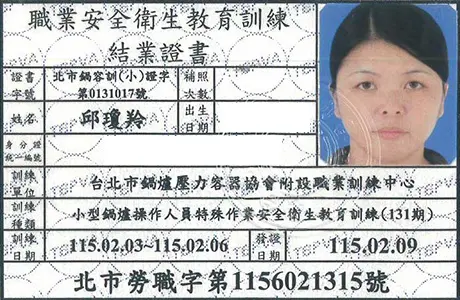 職業安全衛生教育訓練
結業證書
證書字號 北市鍋容訓(小)證字第0131017號 補照次數
姓名 邱瓊羚 出生日期
身分證統一編號
訓練單位 台北市鍋爐壓力容器協會附設職業訓練中心
訓練種類 小型鍋爐操作人員特殊作業安全衛生教育訓練(131期)
訓練日期 115.02.03~115.02.06 發證日期 115.02.09
北市勞職字第1156021315號